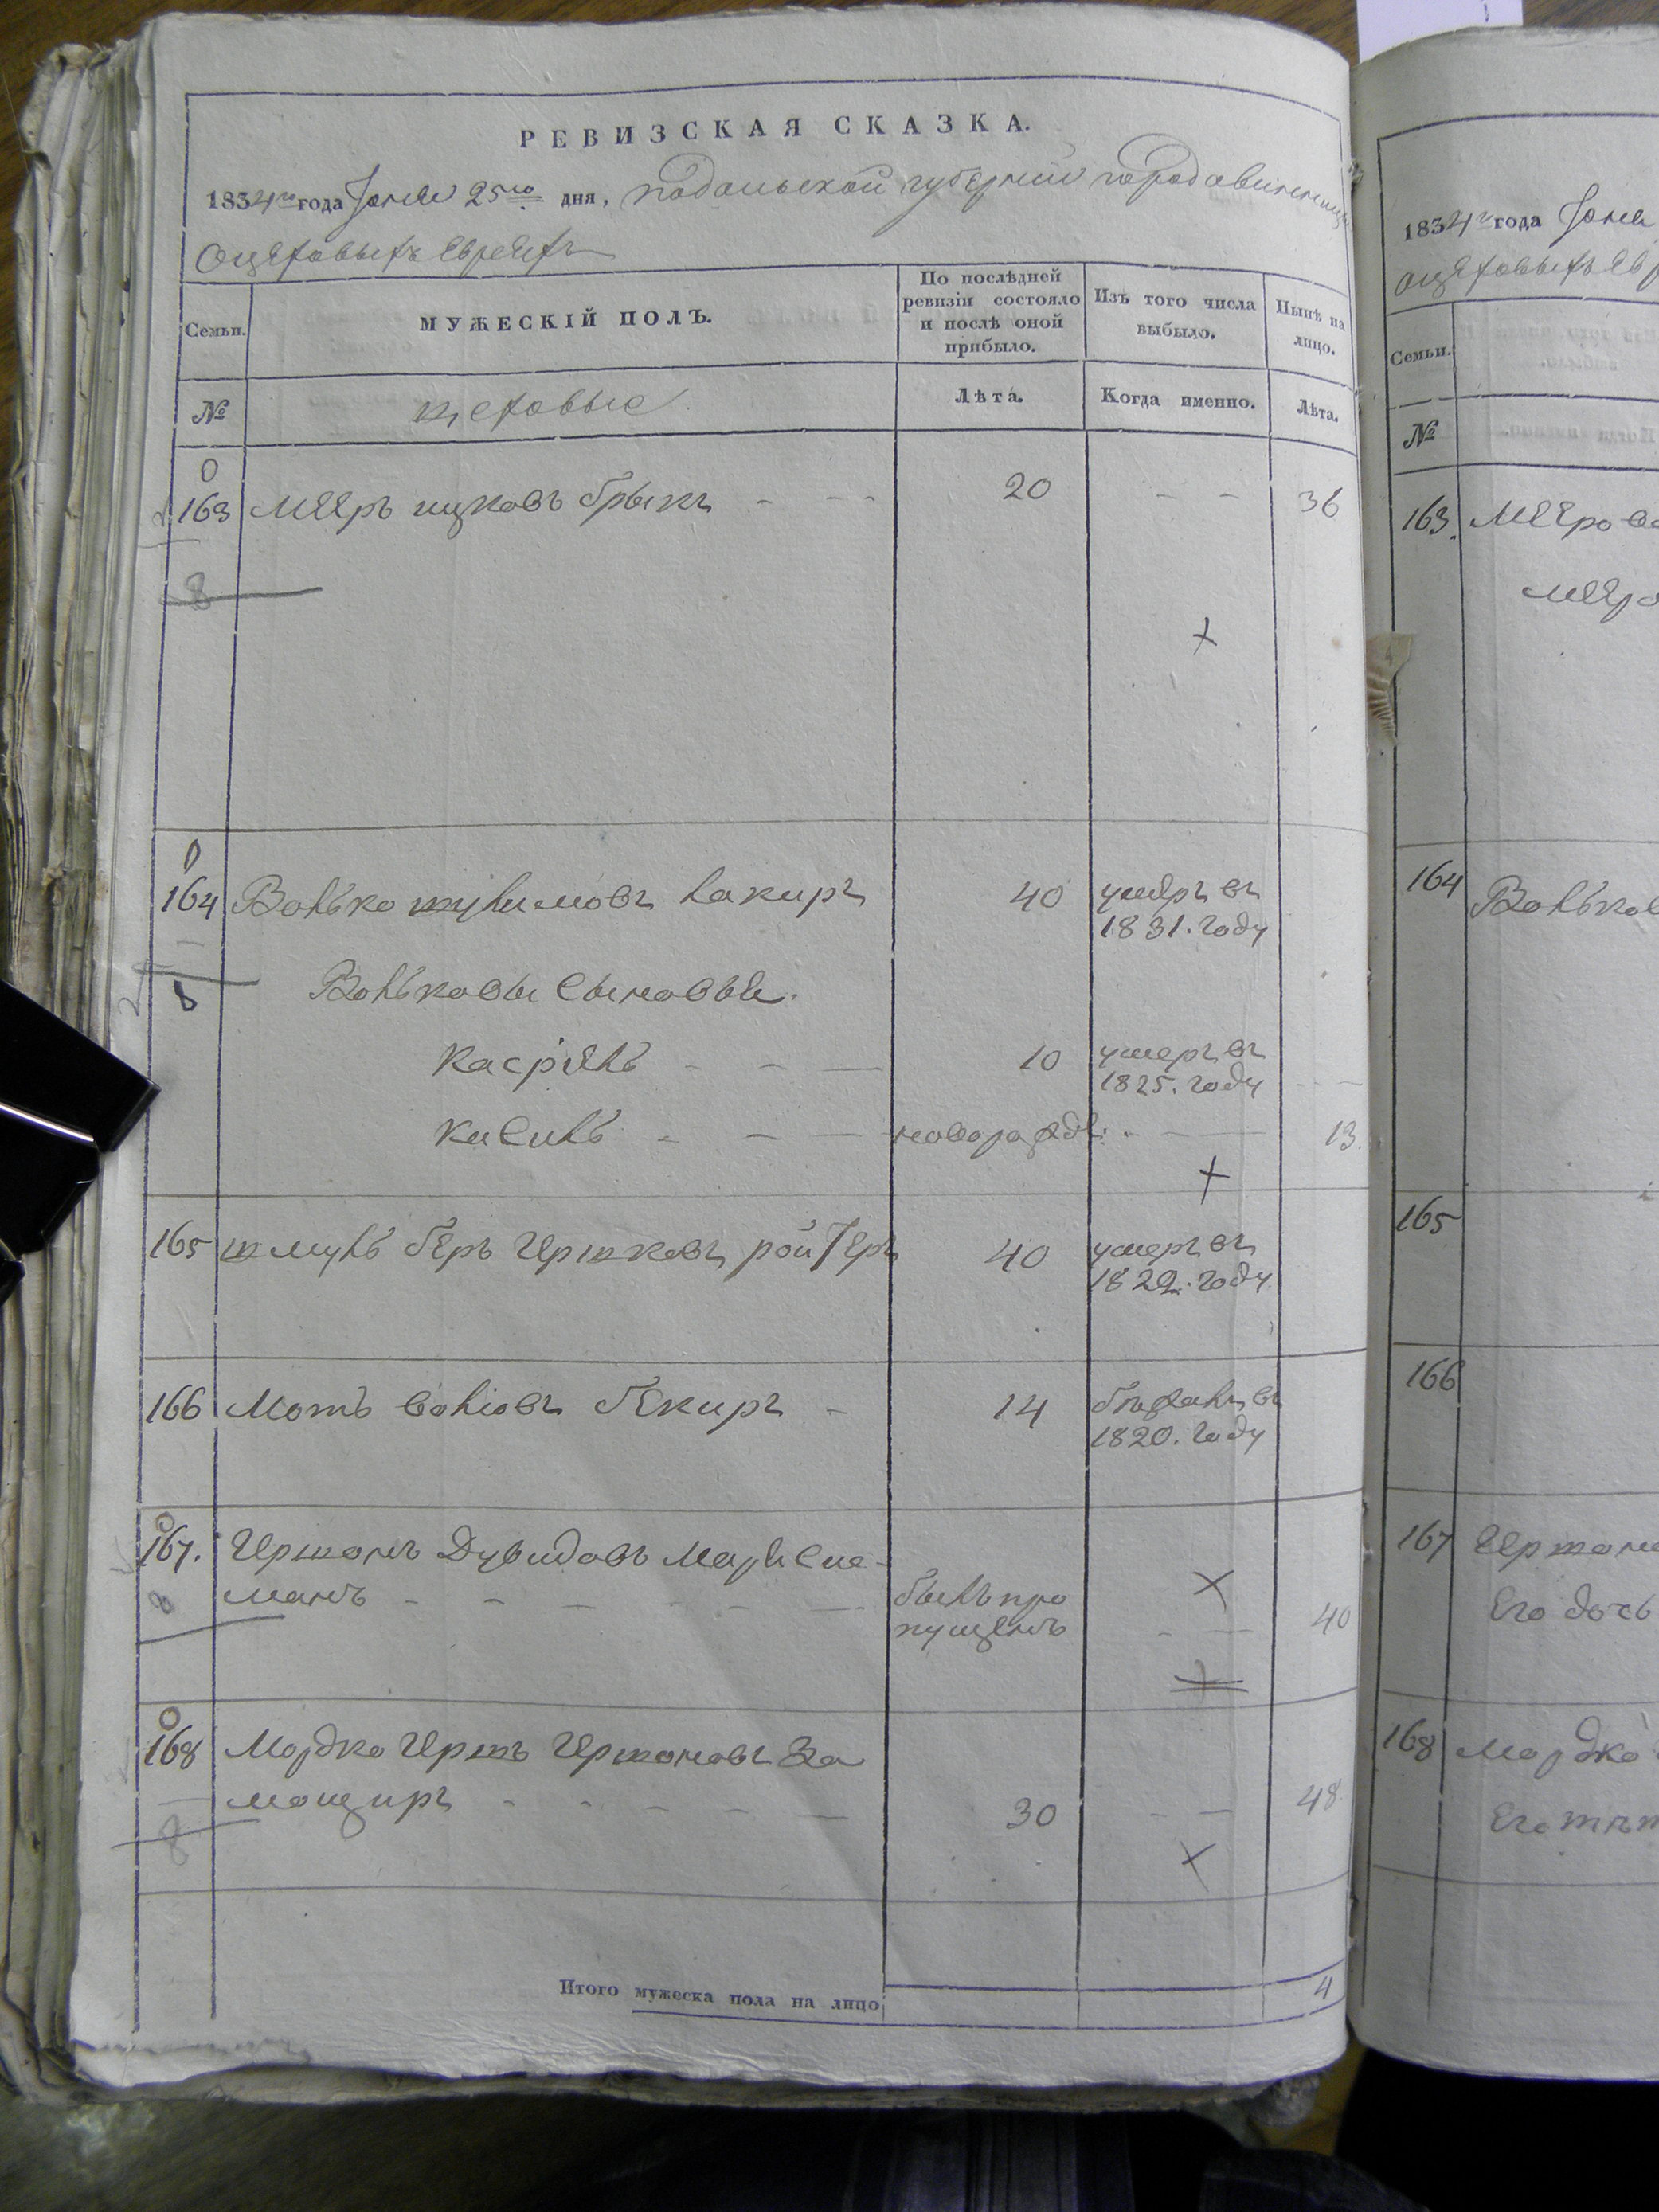 РЕВИЗСКАЯ СКАЗКА.
1834го года Іюня 25го дня, Подольской губерніи города винницы
Оцеховыхъ Евреяхъ
Семьи.
МУЖЕСКІЙ ПОЛЪ.
По послѣдней ревизіи состояло и послѣ оной прибыло.
Изъ того числа выбыло.
Нынѣ на лицо.
№
цеховые
Лѣта.
Когда именно.
Лѣта.
163 Мееръ ицковъ брыкъ - - - 20 - - 36
8
164 Волько шулимовъ лакиръ 40 умеръ въ
1831. году
8
Вольковы Сыновья.
Касріель - - — 10 умеръ въ
1825. году
Кисиль - — — новорожд: - — — 13.
165 шмуль беръ Гершковъ ройтеръ 40 умеръ въ
1822. году
166 Мошъ воліовъ бекиръ - 14 бѣжалъ въ
1820. году
167. Гершонъ Дувидовъ
манъ - - - - - — былъ про
пущенъ - — 40
8
168 Мордко Гершъ Гершоновъ За
мощиръ - - - - — 30 - — 48
8
Итого мужеска пола на лицо 4
1834го года Іюня
оцеховыхъ Ев
Семьи.
№
163.
164
165
166
167
Его дочь
168 Мордко
Его